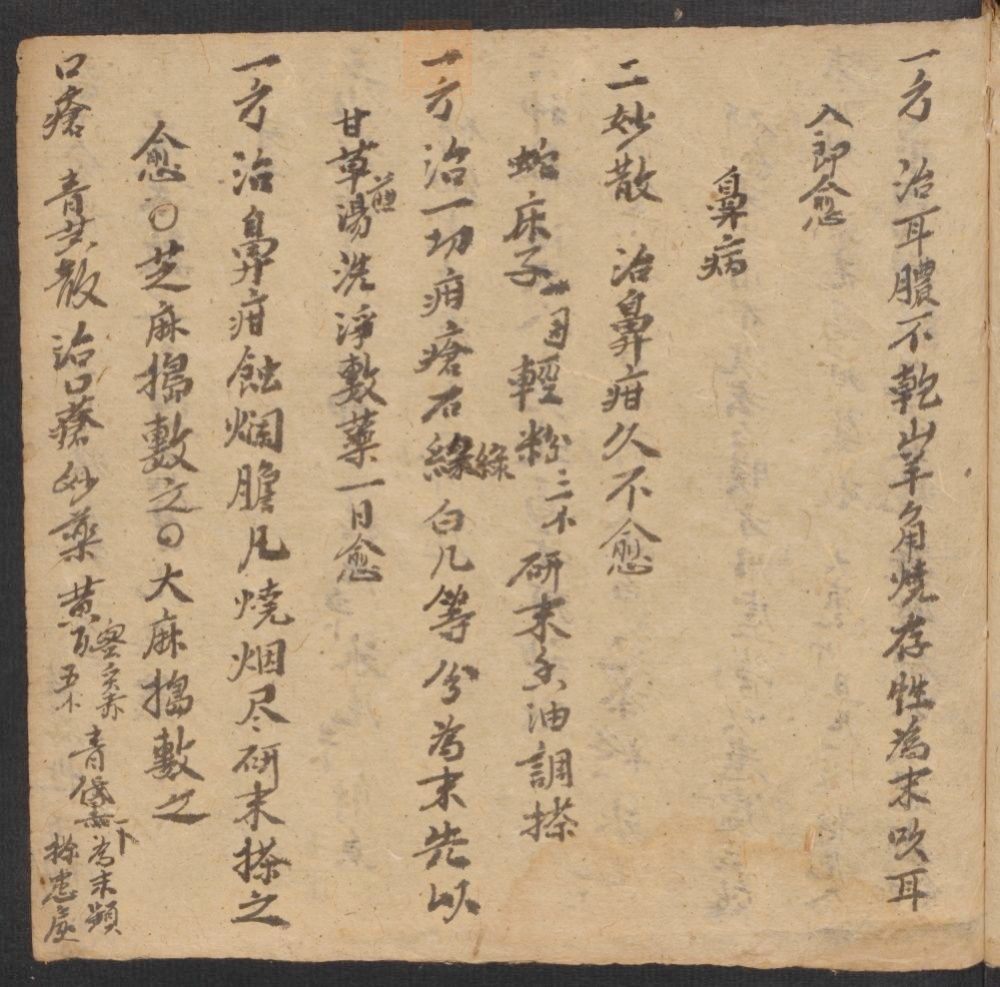 一方 治耳膿不乾山羊角燒存性為末吹耳
入即愈
鼻病
二妙散 治鼻疳久不愈
蛇床子一 輕粉三个研末香油調搽
一方治一切疳瘡石緣綠白凡等分為末先以
甘草湯煎洗淨敷藥一日愈
一方治鼻疳蝕爛膽凡燒烟尽研末搽之
愈〇芝麻搗敷之〇大麻搗敷之
口瘡 青芷散治口瘡妙藥 黃 蜜炙赤 五个 青黛 為末頻 搽患處